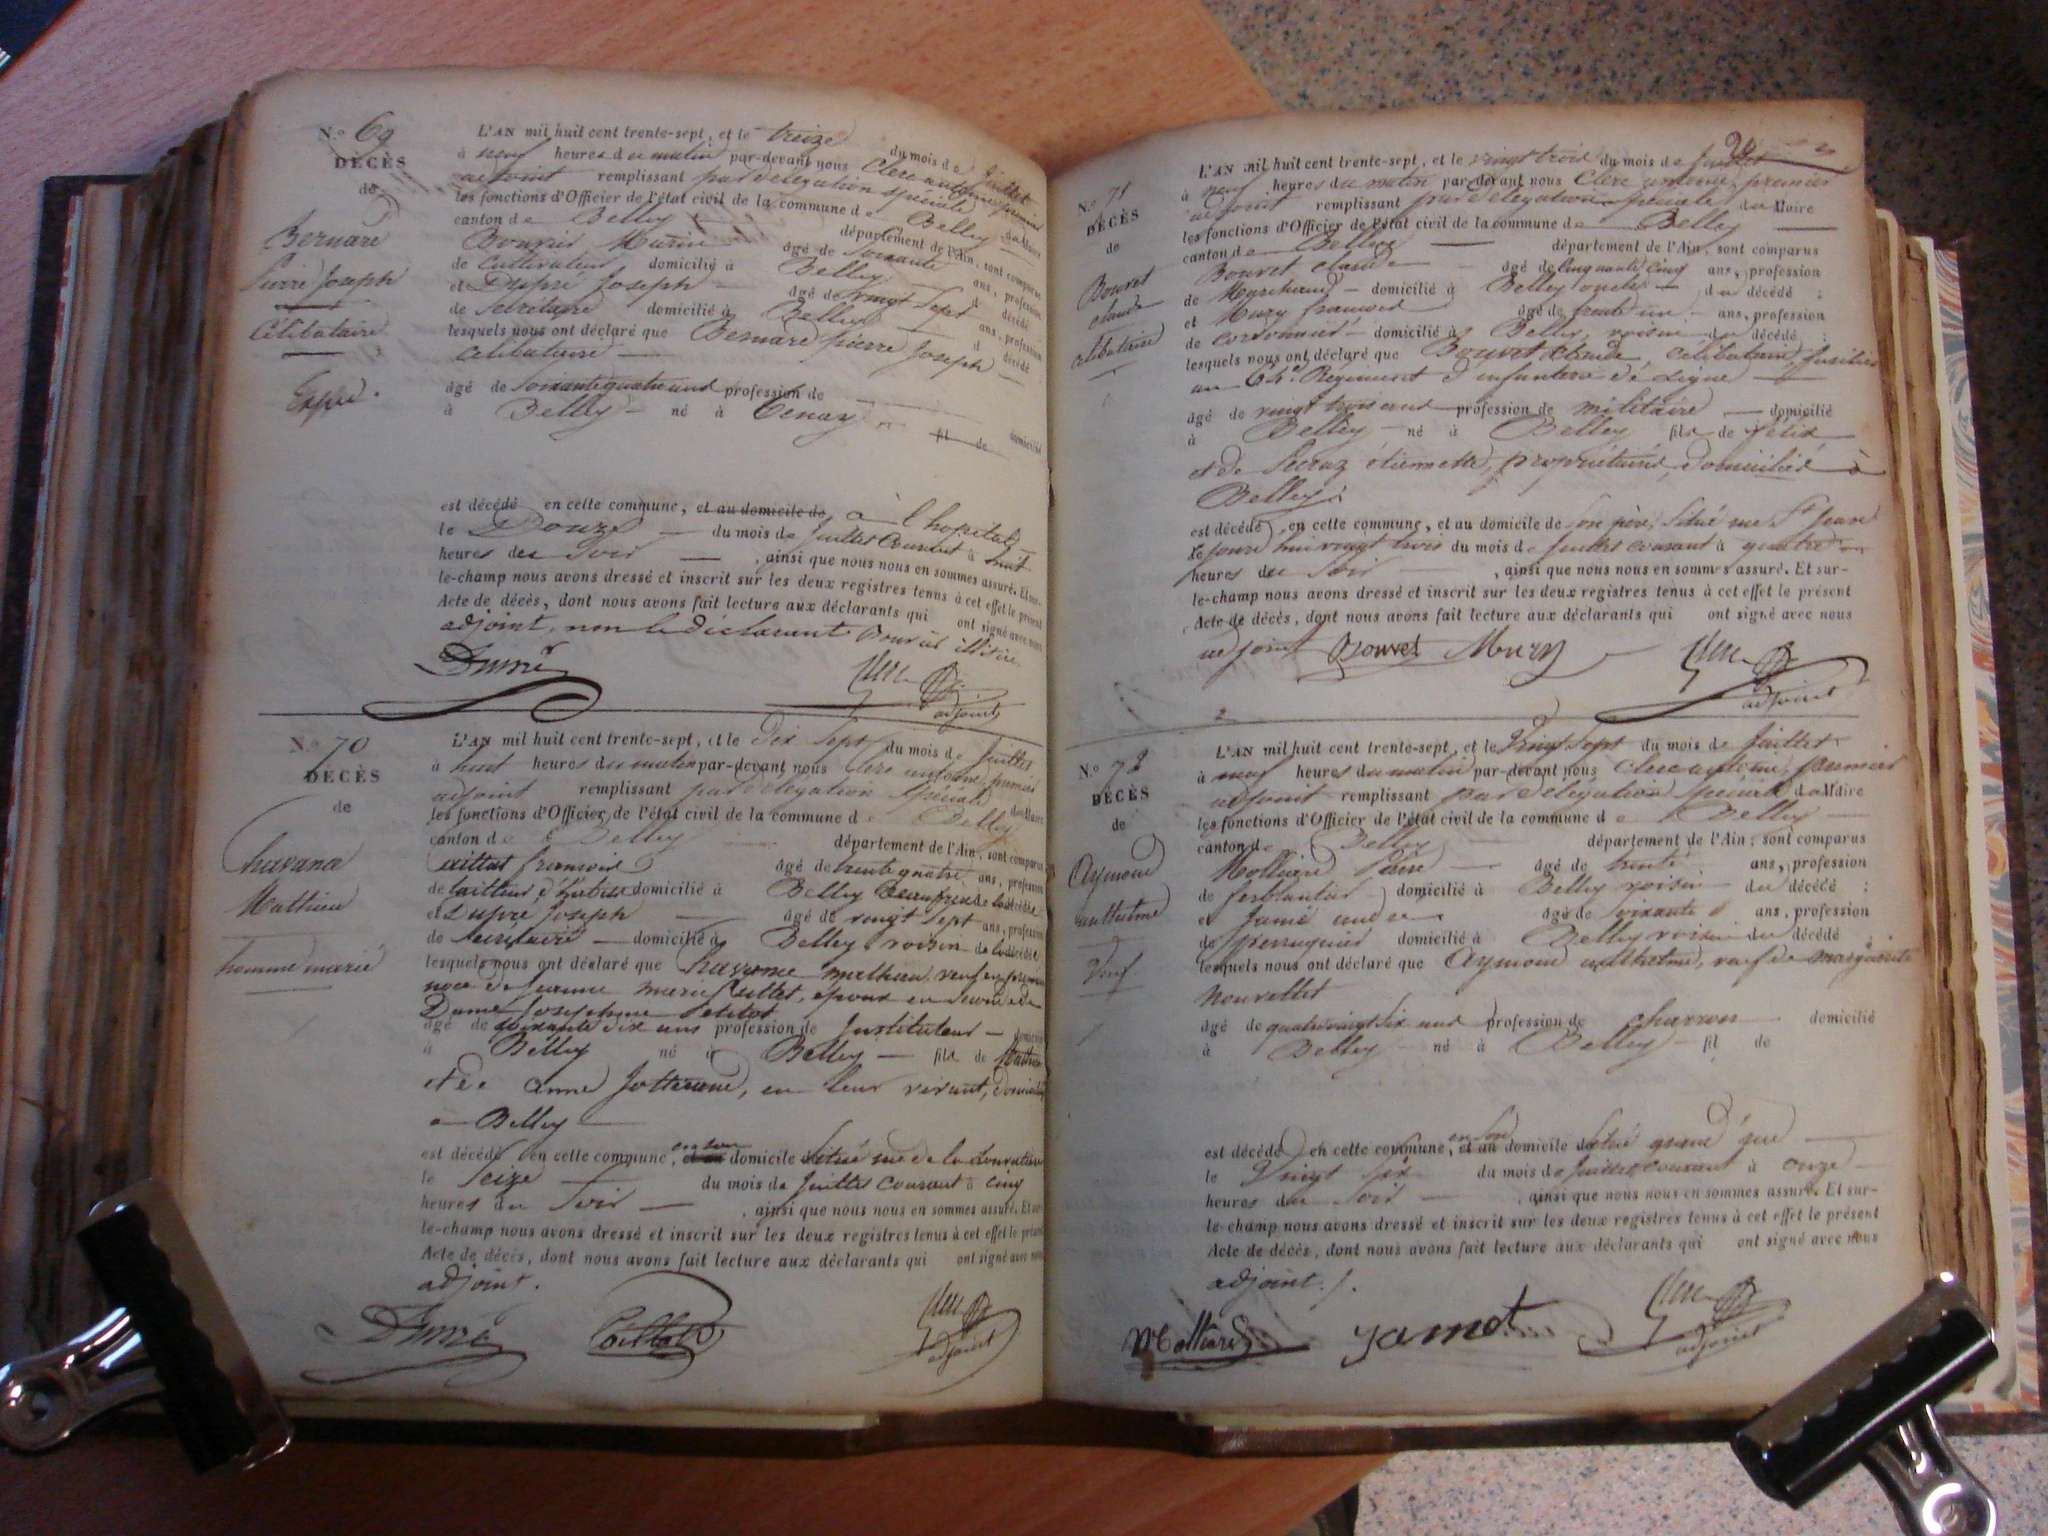 N.o 69
DÉCÈS
de
Bernard
Pierre Joseph
Célibataire
Expé.
L'AN mil huit cent trente-sept, et le treize du mois de Juillet
à neuf heures du matin par-devant nous Clerc antoine premier
adjoint remplissant par délégation spéciale du Maire
les fonctions d'Officier de l'état civil de la commune de Belley
canton de Belley département de l'Ain, sont comparus
âgé de Soixante ans, profession
de Cultivateur domicilié à Belley d décédé
et Dupré Joseph âgé de vingt Sept ans, profession
de Secrétaire domicilié à Belley d décédé
lesquels nous ont déclaré que Bernard pierre Joseph
célibataire
âgé de Soixante quatre ans profession de domicilié
à Belley né à Tenay fil de
est décédé en cette commune, et au domicile de à l'hopital
le Douze du mois de Juillet Courant à huit
heures du Soir, ainsi que nous nous en sommes assuré. Et sur-
le-champ nous avons dressé et inscrit sur les deux registres tenus à cet effet le présent
Acte de décès, dont nous avons fait lecture aux déclarants qui ont signé avec nous
adjoint, non le déclarant illitéré
Dupré Clerc
adjoint
N.o 70
DÉCÈS
de
Chavance
Mathieu
homme marié
L'AN mil huit cent trente-sept, et le dix Sept du mois de Juillet
à huit heures du matin par-devant nous Clerc antoine, premier
adjoint remplissant par délégation Spéciale du Maire
les fonctions d'Officier de l'état civil de la commune de Belley
canton de Belley département de l'Ain, sont comparus
françois âgé de trente quatre ans, profession
de domicilié à Belley Beaufrère de la décédé
et Dupré Joseph âgé de vingt sept ans, profession
de Secrétaire domicilié à Belley voisin de la décédé
lesquels nous ont déclaré que Chavance mathieu, veuf en première
noce de Jeanne marie époux en de
Dame Josephine
âgé de Soixante dix ans profession de Instituteur domicilié
à Belley né à Belley fils de Mathieu
et de anne en leur vivant, domiciliés
à Belley
est décédé en cette commune, en son domicile Situé rue de la
le Seize du mois de Juillet Courant à cinq
heures du Soir, ainsi que nous nous en sommes assuré. Et sur-
le-champ nous avons dressé et inscrit sur les deux registres tenus à cet effet le présent
Acte de décès, dont nous avons fait lecture aux déclarants qui ont signé avec nous
adjoint.
Dupré Clerc
adjoint
N.o 71
DÉCÈS
de
Bouvet
claude
célibataire
L'AN mil huit cent trente-sept, et le vingt trois du mois de Juillet
à neuf heures du matin par-devant nous Clerc antoine, premier
adjoint remplissant par délégation spéciale du Maire
les fonctions d'Officier de l'état civil de la commune de Belley
canton de Belley département de l'Ain, sont comparus
Bouvet claude âgé de Cinquante cinq ans, profession
de Marchand domicilié à Belley oncle du décédé ;
et Mury françois âgé de trente un ans, profession
de cordonnier domicilié à Belley, voisin du décédé ;
lesquels nous ont déclaré que Bouvet claude, célibataire, fusilier
au 64e Régiment d'infanterie de Ligne
âgé de vingt trois ans profession de militaire domicilié
à Belley né à Belley fils de félix
et de étiennette, propriétaires, domiciliés à
Belley
est décédé en cette commune, et au domicile de Son père, Situé rue St Jean
le jourd'hui vingt trois du mois de Juillet courant à quatre
heures du Soir, ainsi que nous nous en sommes assuré. Et sur-
le-champ nous avons dressé et inscrit sur les deux registres tenus à cet effet le présent
Acte de décès, dont nous avons fait lecture aux déclarants qui ont signé avec nous
adjoint Bouvet Mury Clerc
adjoint
N.o 72
DÉCÈS
de
Aymond
anthelme
Veuf
L'AN mil huit cent trente-sept, et le Vingt Sept du mois de Juillet
à neuf heures du matin par-devant nous Clerc antoine, premier
adjoint remplissant par délégation Spéciale du Maire
les fonctions d'Officier de l'état civil de la commune de Belley
canton de Belley département de l'Ain, sont comparus
Molliard âgé de trente ans, profession
de ferblantier domicilié à Belley voisin du décédé ;
et âgé de Soixante ans, profession
de perruquier domicilié à Belley voisin du décédé ;
lesquels nous ont déclaré que Aymond anthelme, veuf de marguerite
Nouvellet
âgé de quatre vingt six ans profession de charron domicilié
à Belley né à Belley fil de
est décédé en cette commune, en Son et au domicile de Situé
le Vingt Six du mois de Juillet Courant à onze
heures du Soir, ainsi que nous nous en sommes assuré. Et sur-
le-champ nous avons dressé et inscrit sur les deux registres tenus à cet effet le présent
Acte de décès, dont nous avons fait lecture aux déclarants qui ont signé avec nous
adjoint.
Molliard Jamet Clerc
adjoint